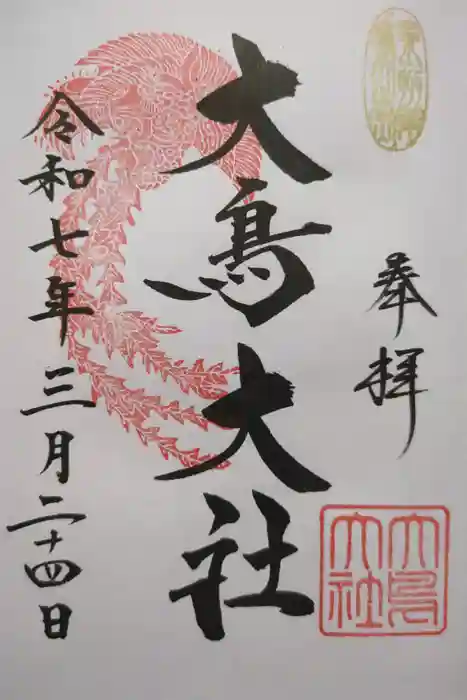 奉拝
大鳥大社
令和七年三月二十四日
大鳥
大社